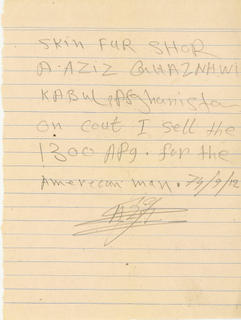 SKIN FUR SHOR
A. AZIZ GHAZNAWI
KABUL, AFghanistan
on cout I sell the
1300 AFg. for the
American man. 74/9/12